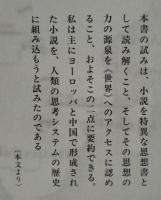 本書の試みは、小説を特異な思想書と
して読み解くこと、そしてその思想の
力の源泉を〈世界〉へのアクセスに認め
ること、およそこの二点に要約できる。
私は主にヨーロッパと中国で形成され
た小説を、人類の思考システムの歴史
に組み込もうと試みたのである
（本文より）